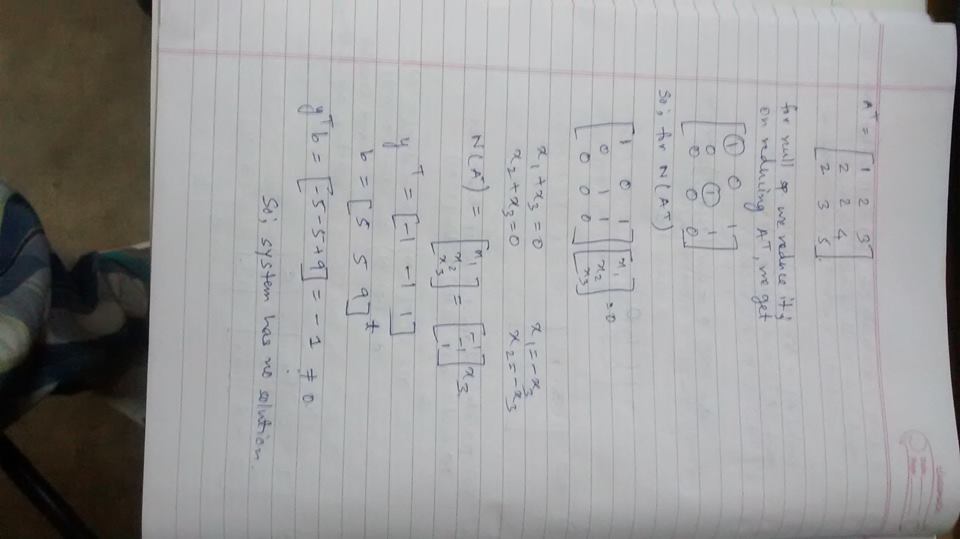 A^T = [ 1 2 3
2 2 4
2 3 5 ]
for null sp we reduce it;
on reducing A^T, we get
[ 1 0 1
0 1 1
0 0 0 ]
So; for N(A^T)
[ 1 0 1
0 1 1
0 0 0 ] [ x1
x2
x3 ] = 0
x1 + x3 = 0 x1 = -x3
x2 + x3 = 0 x2 = -x3
N(A^T) = [ x1
x2
x3 ] = [ -1
-1
1 ] x3
y^T = [ -1 -1 1 ]
b = [ 5 5 9 ]^t
y^T b = [ -5 -5 +9 ] = -1 ≠ 0
So; system has no solution.